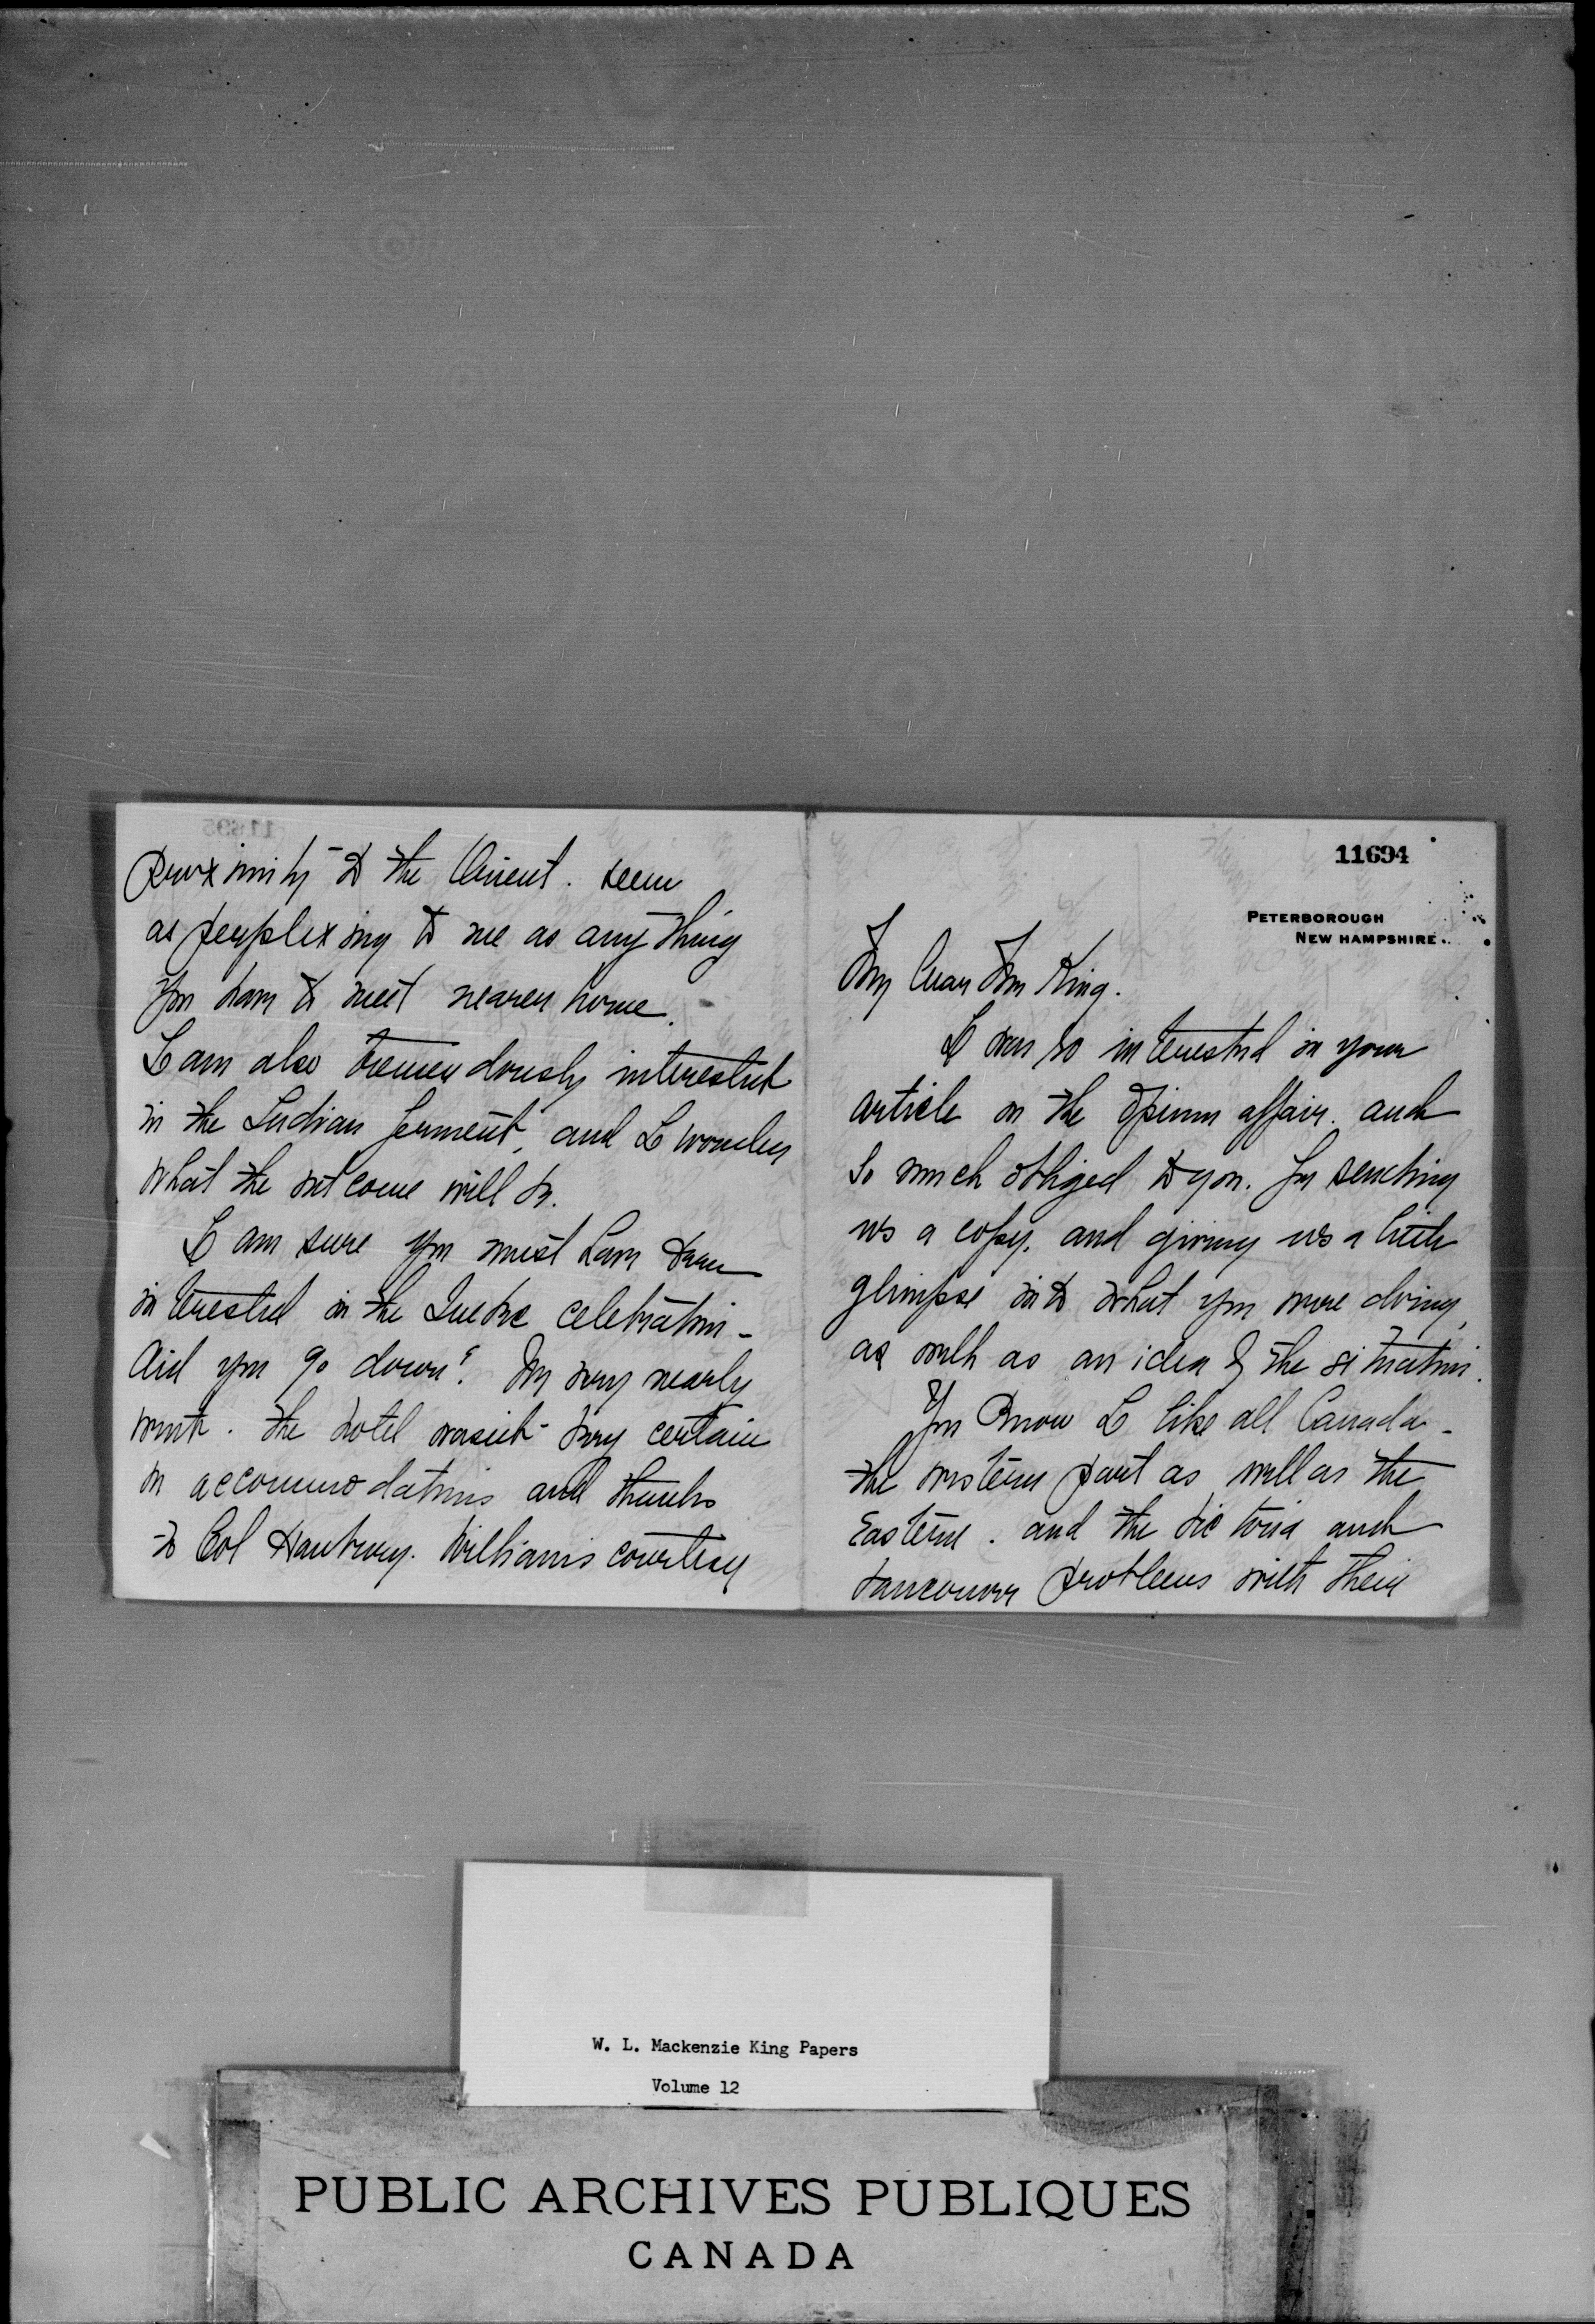 11694
PETERBOROUGH
NEW HAMPSHIRE.
My dear Mr King.
I was so interested in your
article on the Opium affair. and
so much obliged to you. for sending
us a copy. and giving us a little
glimpse into what you were doing,
as well as an idea of the situation.
You know I like all Canada -
the western part as well as the
Eastern. and the Victoria and
Vancouver problems with their
proximity to the Orient. seem
as perplexing to me as any thing
you have to meet nearer home.
I am also tremendously interested
in the Indian ferment, and I wonder
what the outcome will be.
I am sure you must have been
interested in the Quebec celebration -
Did you go down? We very nearly
went. The hotel wasn't very certain
on accommodations and thanks
to Col Hanbury. Williams courtesy
W. L. Mackenzie King Papers
Volume 12
PUBLIC ARCHIVES PUBLIQUES
CANADA